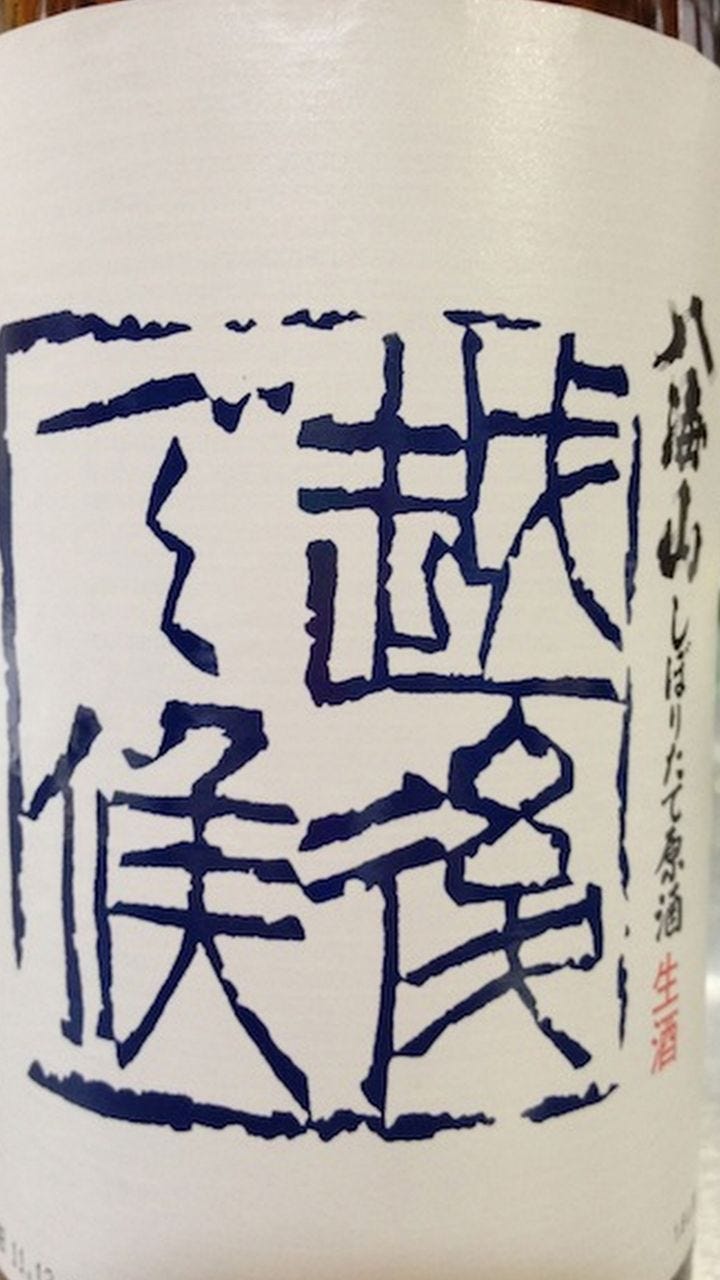 八海山しぼりたて原酒 生酒
越後
で候
11.12